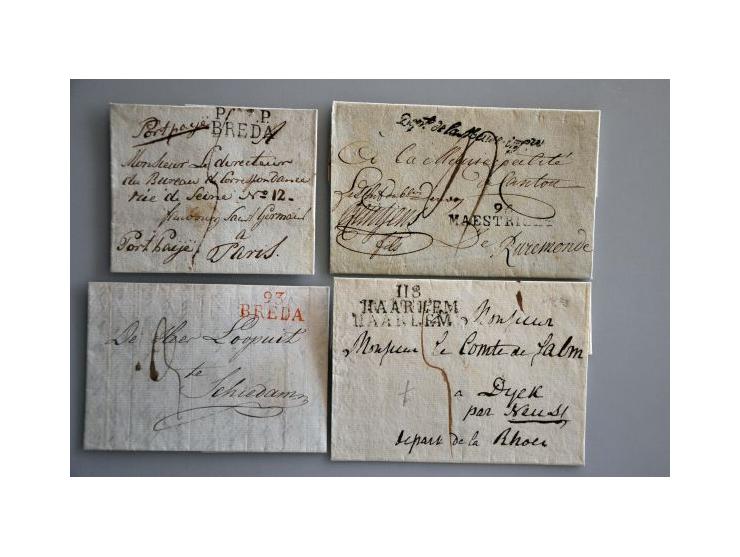 P. P.
BREDA
Port payé
Monsieur Le directeur
du Bureau de Correspondance
rüe de Seine No 12.
faubourg Saint Germain
a
Port payé
Paris.
Dept. de la Meuse infre
à la Municipalité
de Canton
94
MAESTRICHT
de Ruremonde
93
BREDA
De Heer Loopuit
te
Schiedam
118
HAARLEM
HAARLEM
Monsieur
Monsieur le Comte de Salm
a Dyck
par Neuss
depart de la Rhoer